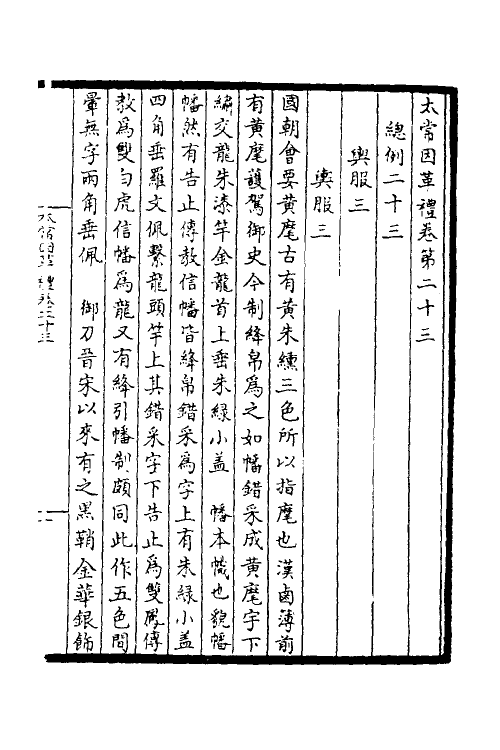 太常因革禮卷第二十三
總例二十三
輿服三
輿服三
國朝會要黃麾古有黃朱纁三色所以指麾也漢鹵薄前
有黃麾護駕御史今制絳帛為之如幡錯采成黃麾字下
繡交龍朱漆竿金龍首上垂朱綠小蓋　幡本幟也貌幡
幡然有告止傳教信幡皆絳帛錯采為字上有朱綠小蓋
四角垂羅文佩繫龍頭竿上其錯采字下告止為雙鳳傳
教為雙白虎信幡為龍又有絳引幡制頗同此作五色間
暈無字兩角垂佩　御刀晉宋以來有之黑鞘金華銀飾
太常因革禮卷二十三
一